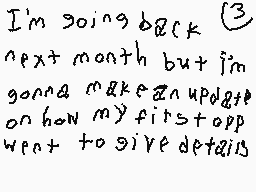 I'm going back (3
next month but I'm
gonna make an update
on how my first opp
went to give details